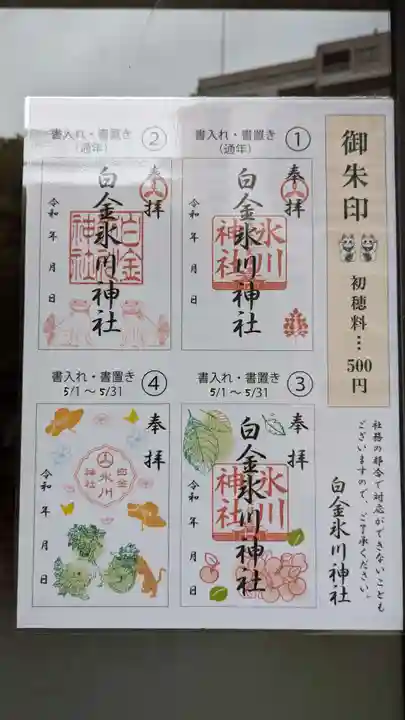 御朱印
初穂料…500円
社務の都合で対応ができないことも
ございますので、ご了承ください。
白金氷川神社
①
書入れ・書置き
(通年)
奉拝
氷川神社
白金氷川神社
令和 年 月 日
②
書入れ・書置き
(通年)
奉拝
白金神社
白金氷川神社
令和 年 月 日
③
書入れ・書置き
5/1～5/31
奉拝
氷川神社
白金氷川神社
令和 年 月 日
④
書入れ・書置き
5/1～5/31
奉拝
白金
氷川
神社
令和 年 月 日